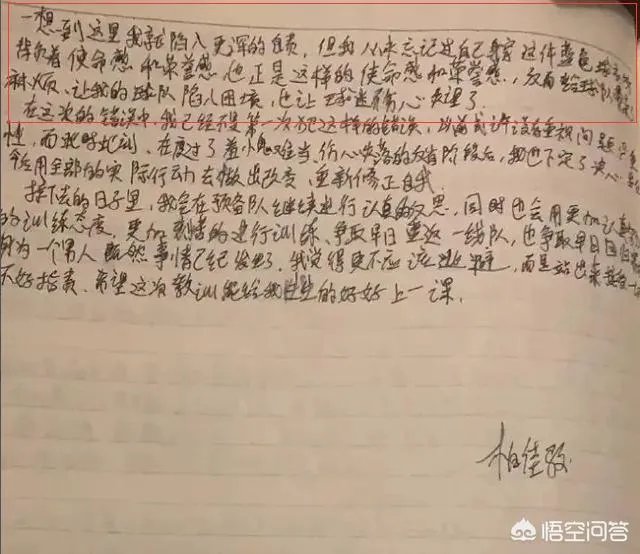 一想到这里我就陷入更深的自责，但我从未忘记过自己身穿这件蓝色球衣
背负着使命感和荣誉感，也正是这样的使命感和荣誉感，反而给球队
麻烦、让我的球队陷入困境，也让球迷痛心失望了。
在这次的错误中，我已经不是第一次犯这样的错误，以前或许没有重视问题
性，而此时此刻，在度过了羞愧难当，伤心失落的反省阶段后，我也下定了决心
会用全部的实际行动去做出改变，重新修正自我。
接下去的日子里，我会在预备队继续进行认真的反思，同时也会用更加认真
的训练态度，更加刻苦的进行训练、争取早日重返一线队，也争取早日回归
身为一个男人既然事情已经发生了，我觉得更不应该逃避，而是站出来接受一
不好指责、希望这次教训能给我的好好上一课。
柏佳骏
悟空问答